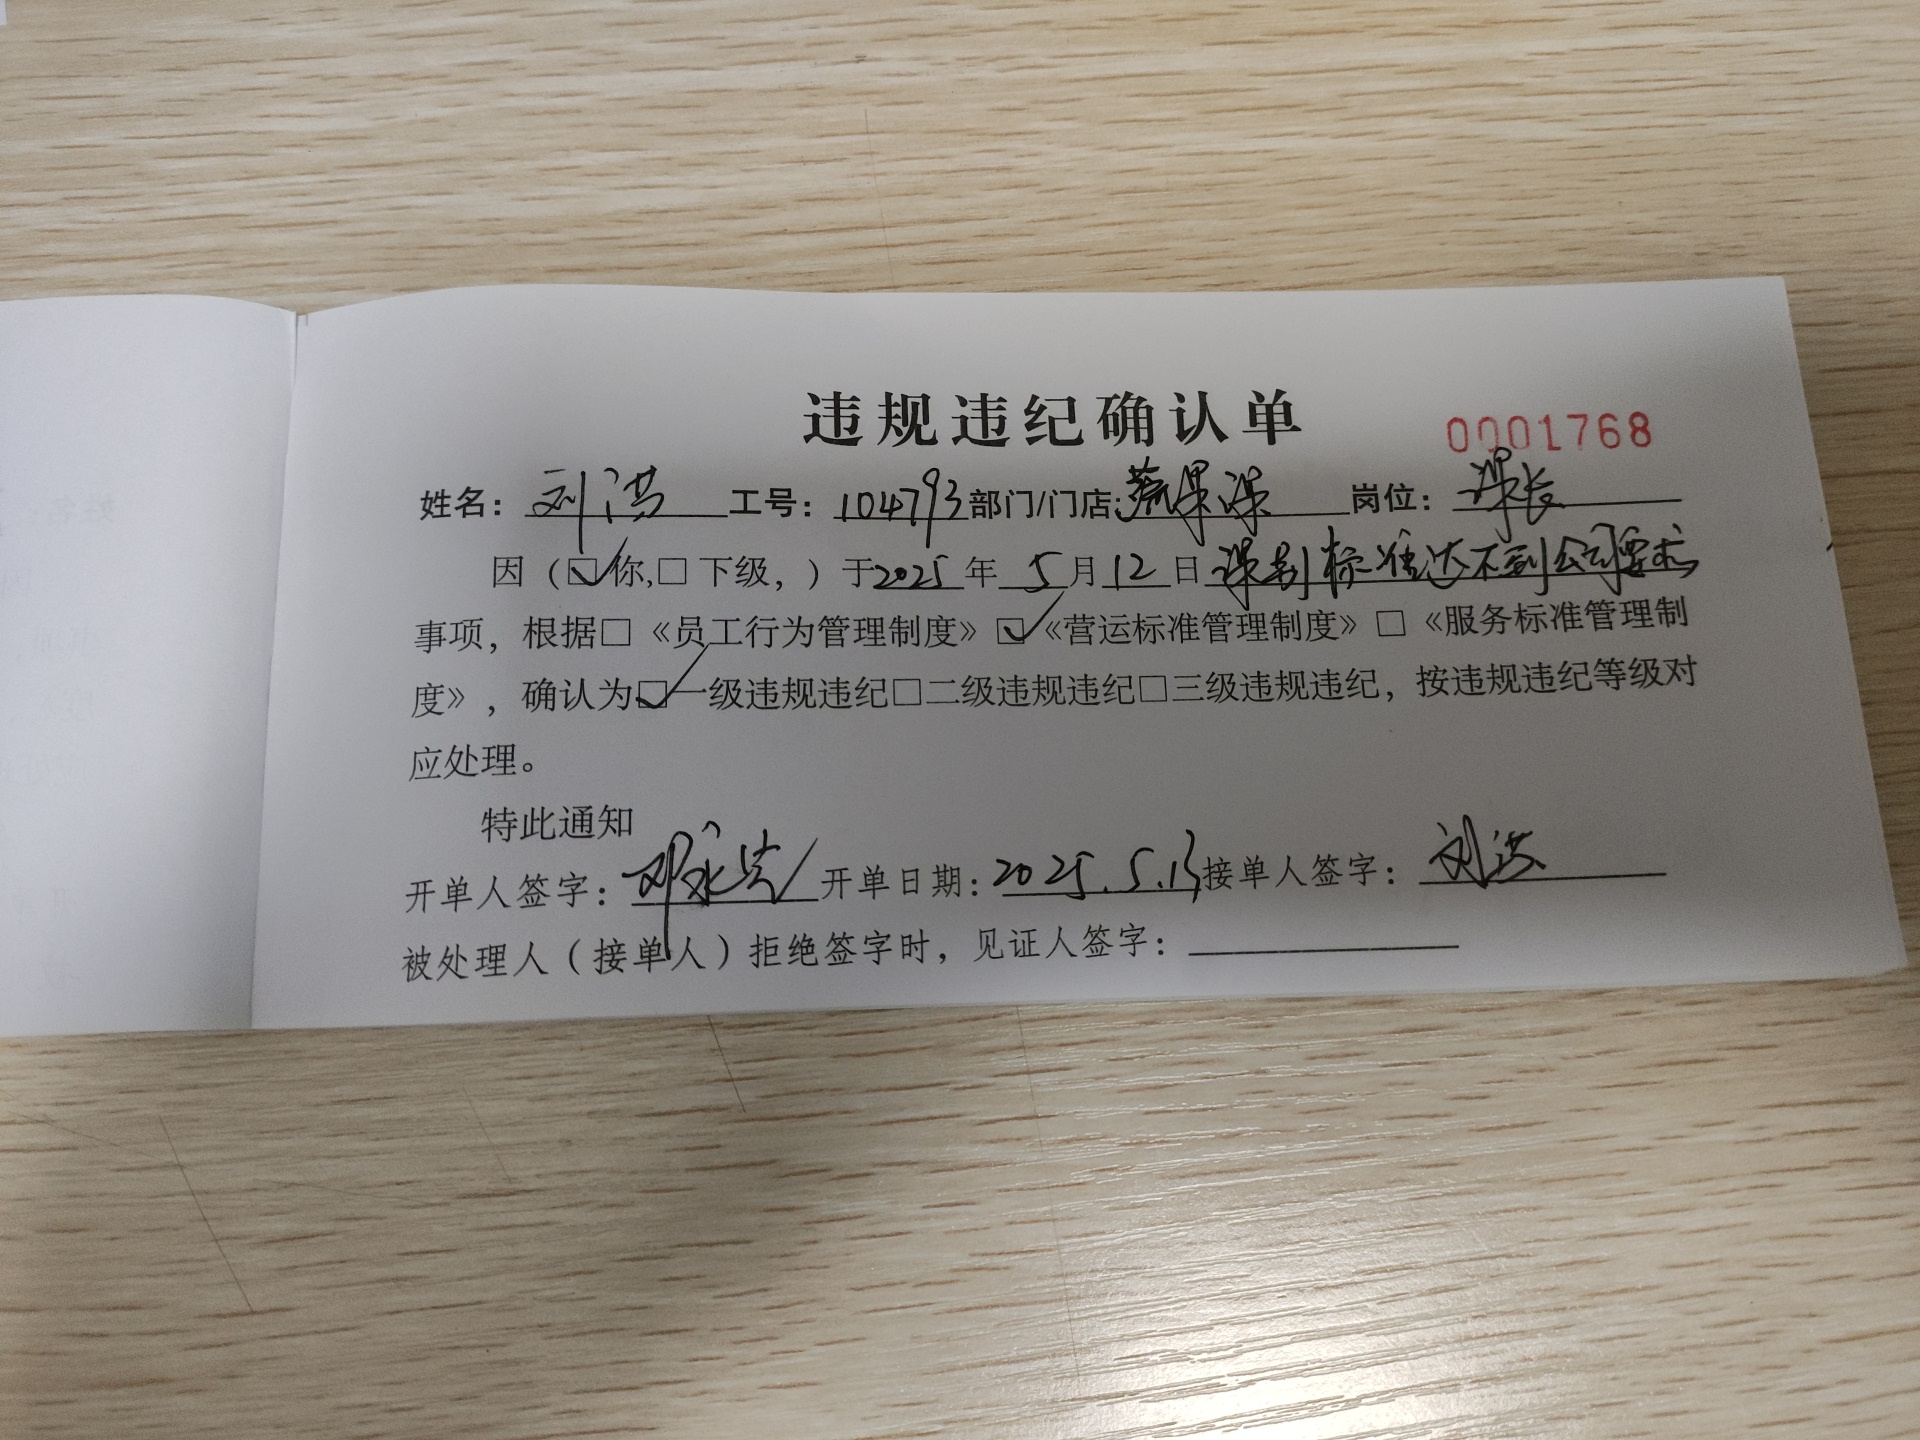 违规违纪确认单 0001768
姓名：刘洪 工号：104793 部门/门店：蔬果课 岗位：课长
因（☑你,□下级，）于2025年5月12日课别标准达不到公司要求
事项，根据□《员工行为管理制度》☑《营运标准管理制度》□《服务标准管理制
度》，确认为☑一级违规违纪□二级违规违纪□三级违规违纪，按违规违纪等级对
应处理。
特此通知
开单人签字：邓永 开单日期：2025.5.13 接单人签字：刘洪
被处理人（接单人）拒绝签字时，见证人签字：